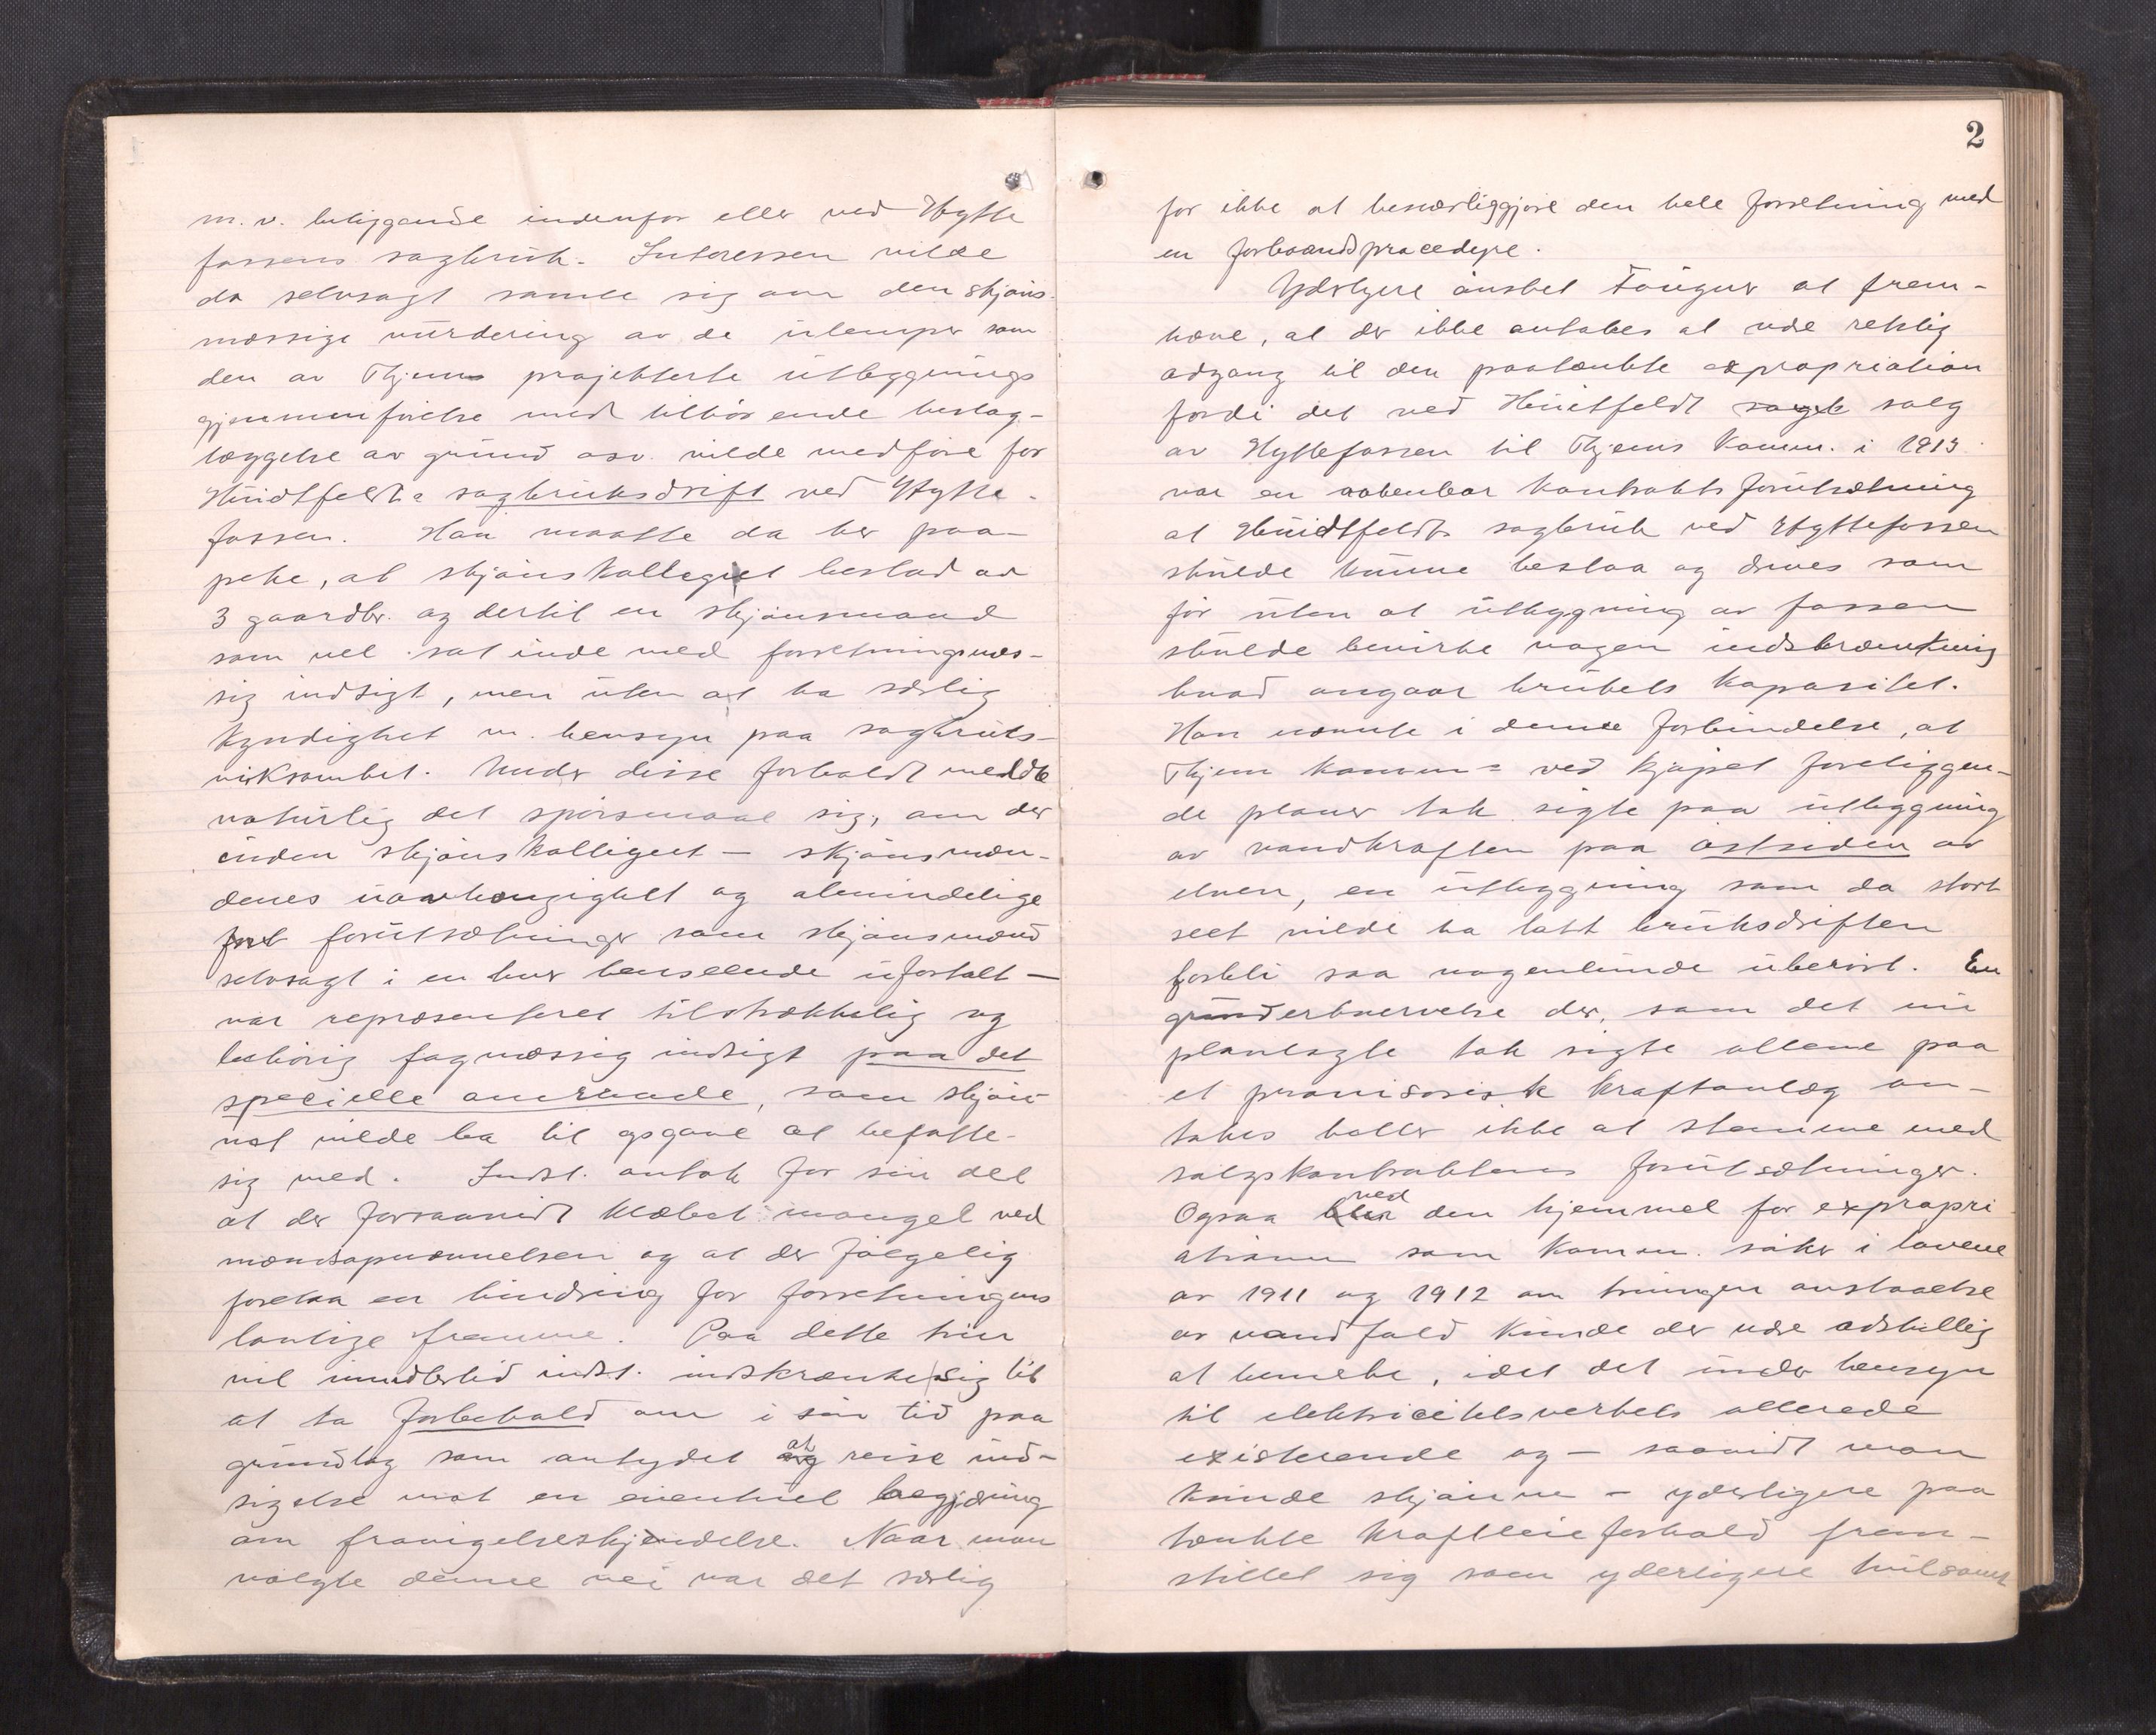 m. v. beliggende indenfor eller ved Hytte
fossens sagbruk. Interessen vilde
da selvsagt samle sig om den skjøns-
mæssige vurdering av de ulemper som
den av Thjems projekterte utbyggnings
gjennemførelse med tilhørende beslag-
læggelse av grund osv. vilde medføre for
Hüidtfeldts sagbruksdrift ved Hytte-
fossen. Han maatte da her paa-
peke, at skjønskollegiet bestod av
3 gaardbr. og dertil en skjønsmand
som vel sat inde med forretningsmæs-
sig indsigt, men uten at ha særlig
kyndighet m. hensyn paa sagbruks-
virksomhet. Under disse forhold meldte
naturlig det spørsmaal sig, om der
inden skjønskolligeet - skjønsmæn-
denes uavhængighet og almindelige
forutsætninger som skjønsmænd
selvsagt i en hver henseende ufortalt -
var repræsenteret tilstrækkelig og
behørig fagmæssig indsigt paa det
specielle omraade, som skjøn-
net vilde ha til opgave at befatte
sig med. Indst. antok for sin del
at der forsaavidt klæbet mangel ved
mændsopnævnelsen og at der følgelig
forelaa en hindring for forretningens
lovlige fremme. Paa dette trin
vil imidlertid indst. indskrænke sig til
at ta forbehold om i sin tid paa
grundlag som antydet at reise ind-
sigelse mot en eventuel begjæring
om fravigelseskjendelse. Naar man
valgte denne vei var det særlig
2
for ikke at besværliggjøre den hele forretning med
en forhaandsprocedyre.
Yderligere ønsket Fougner at frem-
hæve, at der ikke antakes at være retslig
adgang til den paatænkte expropriation
fordi det ved Hüitfeldt salg
av Hyttefossen til Thjems Komm. i 1913
var en aabenbar kontraktsforutsætning
at Hüidtfeldts sagbruk ved Hyttefossen
skulde kunne bestaa og drives som
før uten at utbyggning av fossen
skulde bevirke nogen indskrænkning
hvad angaar brukets kapasitet.
Han nævnte i denne forbindelse, at
Thjem komm= ved kjøpet foreliggen-
de planer tok sigte paa utbyggning
av vandkraften paa østsiden av
elven, en utbyggning som da stort
seet vilde ha latt bruksdriften
forbli saa nogenlunde uberørt. En
grunderhvervelse der, som det nu
planlagte tok sigte allene paa
et provisorisk kraftanlæg an-
takes heller ikke at stemme med
salgskontraktens forutsætninger.
Ogsaa ved den hjemmel for expropri
ationen som komm. søker i lovene
av 1911 og 1912 om tvungen avstaaelse
av vandfald kunde der være adskillig
at bemerke, idet det under hensyn
til elektricitetsverkets allerede
existerende og - saavidt man
kunde skjønne - yderligere paa
tænkte kraftleieforhold frem-
stillet sig som yderligere tvilsomt